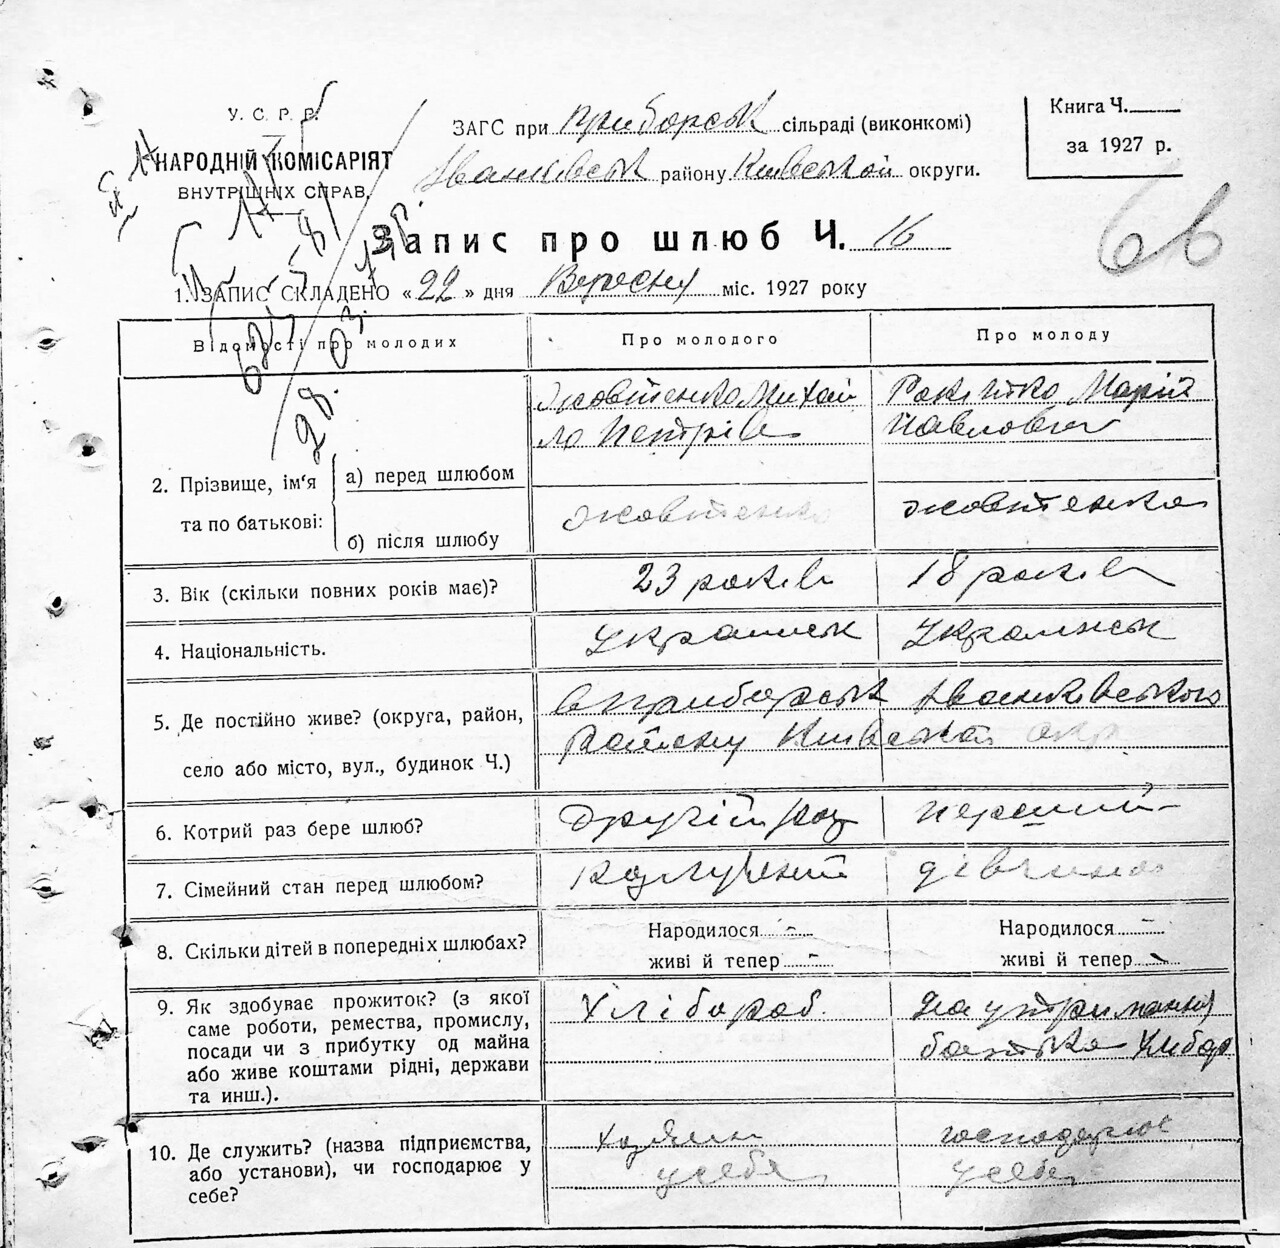 У. С. Р. Р.
НАРОДНІЙ КОМІСАРІЯТ
ВНУТРІШНІХ СПРАВ.
ЗАГС при Приборськ сільраді (виконкомі)
Іванківськ району Київської округи.
Книга Ч.
за 1927 р.
6в
Запис про шлюб Ч. 16
1. ЗАПИС СКЛАДЕНО « 22 » дня Вересня міс. 1927 року
Відомості про молодих
Про молодого
Про молоду
2. Прізвище, ім'я та по батькові:
а) перед шлюбом
Жовтенко Михай
ло Петрів
Ракитко Марія
Павловна
б) після шлюбу
Жовтенко
Жовтенко
3. Вік (скільки повних років має)?
23 років
18 років
4. Національність.
Українськ
Українськ
5. Де постійно живе? (округа, район,
село або місто, вул., будинок Ч.)
в Приборськ Іванківського
району Київської окр
6. Котрий раз бере шлюб?
Другій раз
Перший
7. Сімейний стан перед шлюбом?
дівчина
8. Скільки дітей в попередніх шлюбах?
Народилося -
живі й тепер -
Народилося -
живі й тепер -
9. Як здобуває прожиток? (з якої
саме роботи, ремества, промислу,
посади чи з прибутку од майна
або живе коштами рідні, держави
та инш.).
Хлібороб.
На утриманні
батька Хлібор
10. Де служить? (назва підприємства,
або установи), чи господарює у
себе?
Хазяин
у себя
господарює
у себе